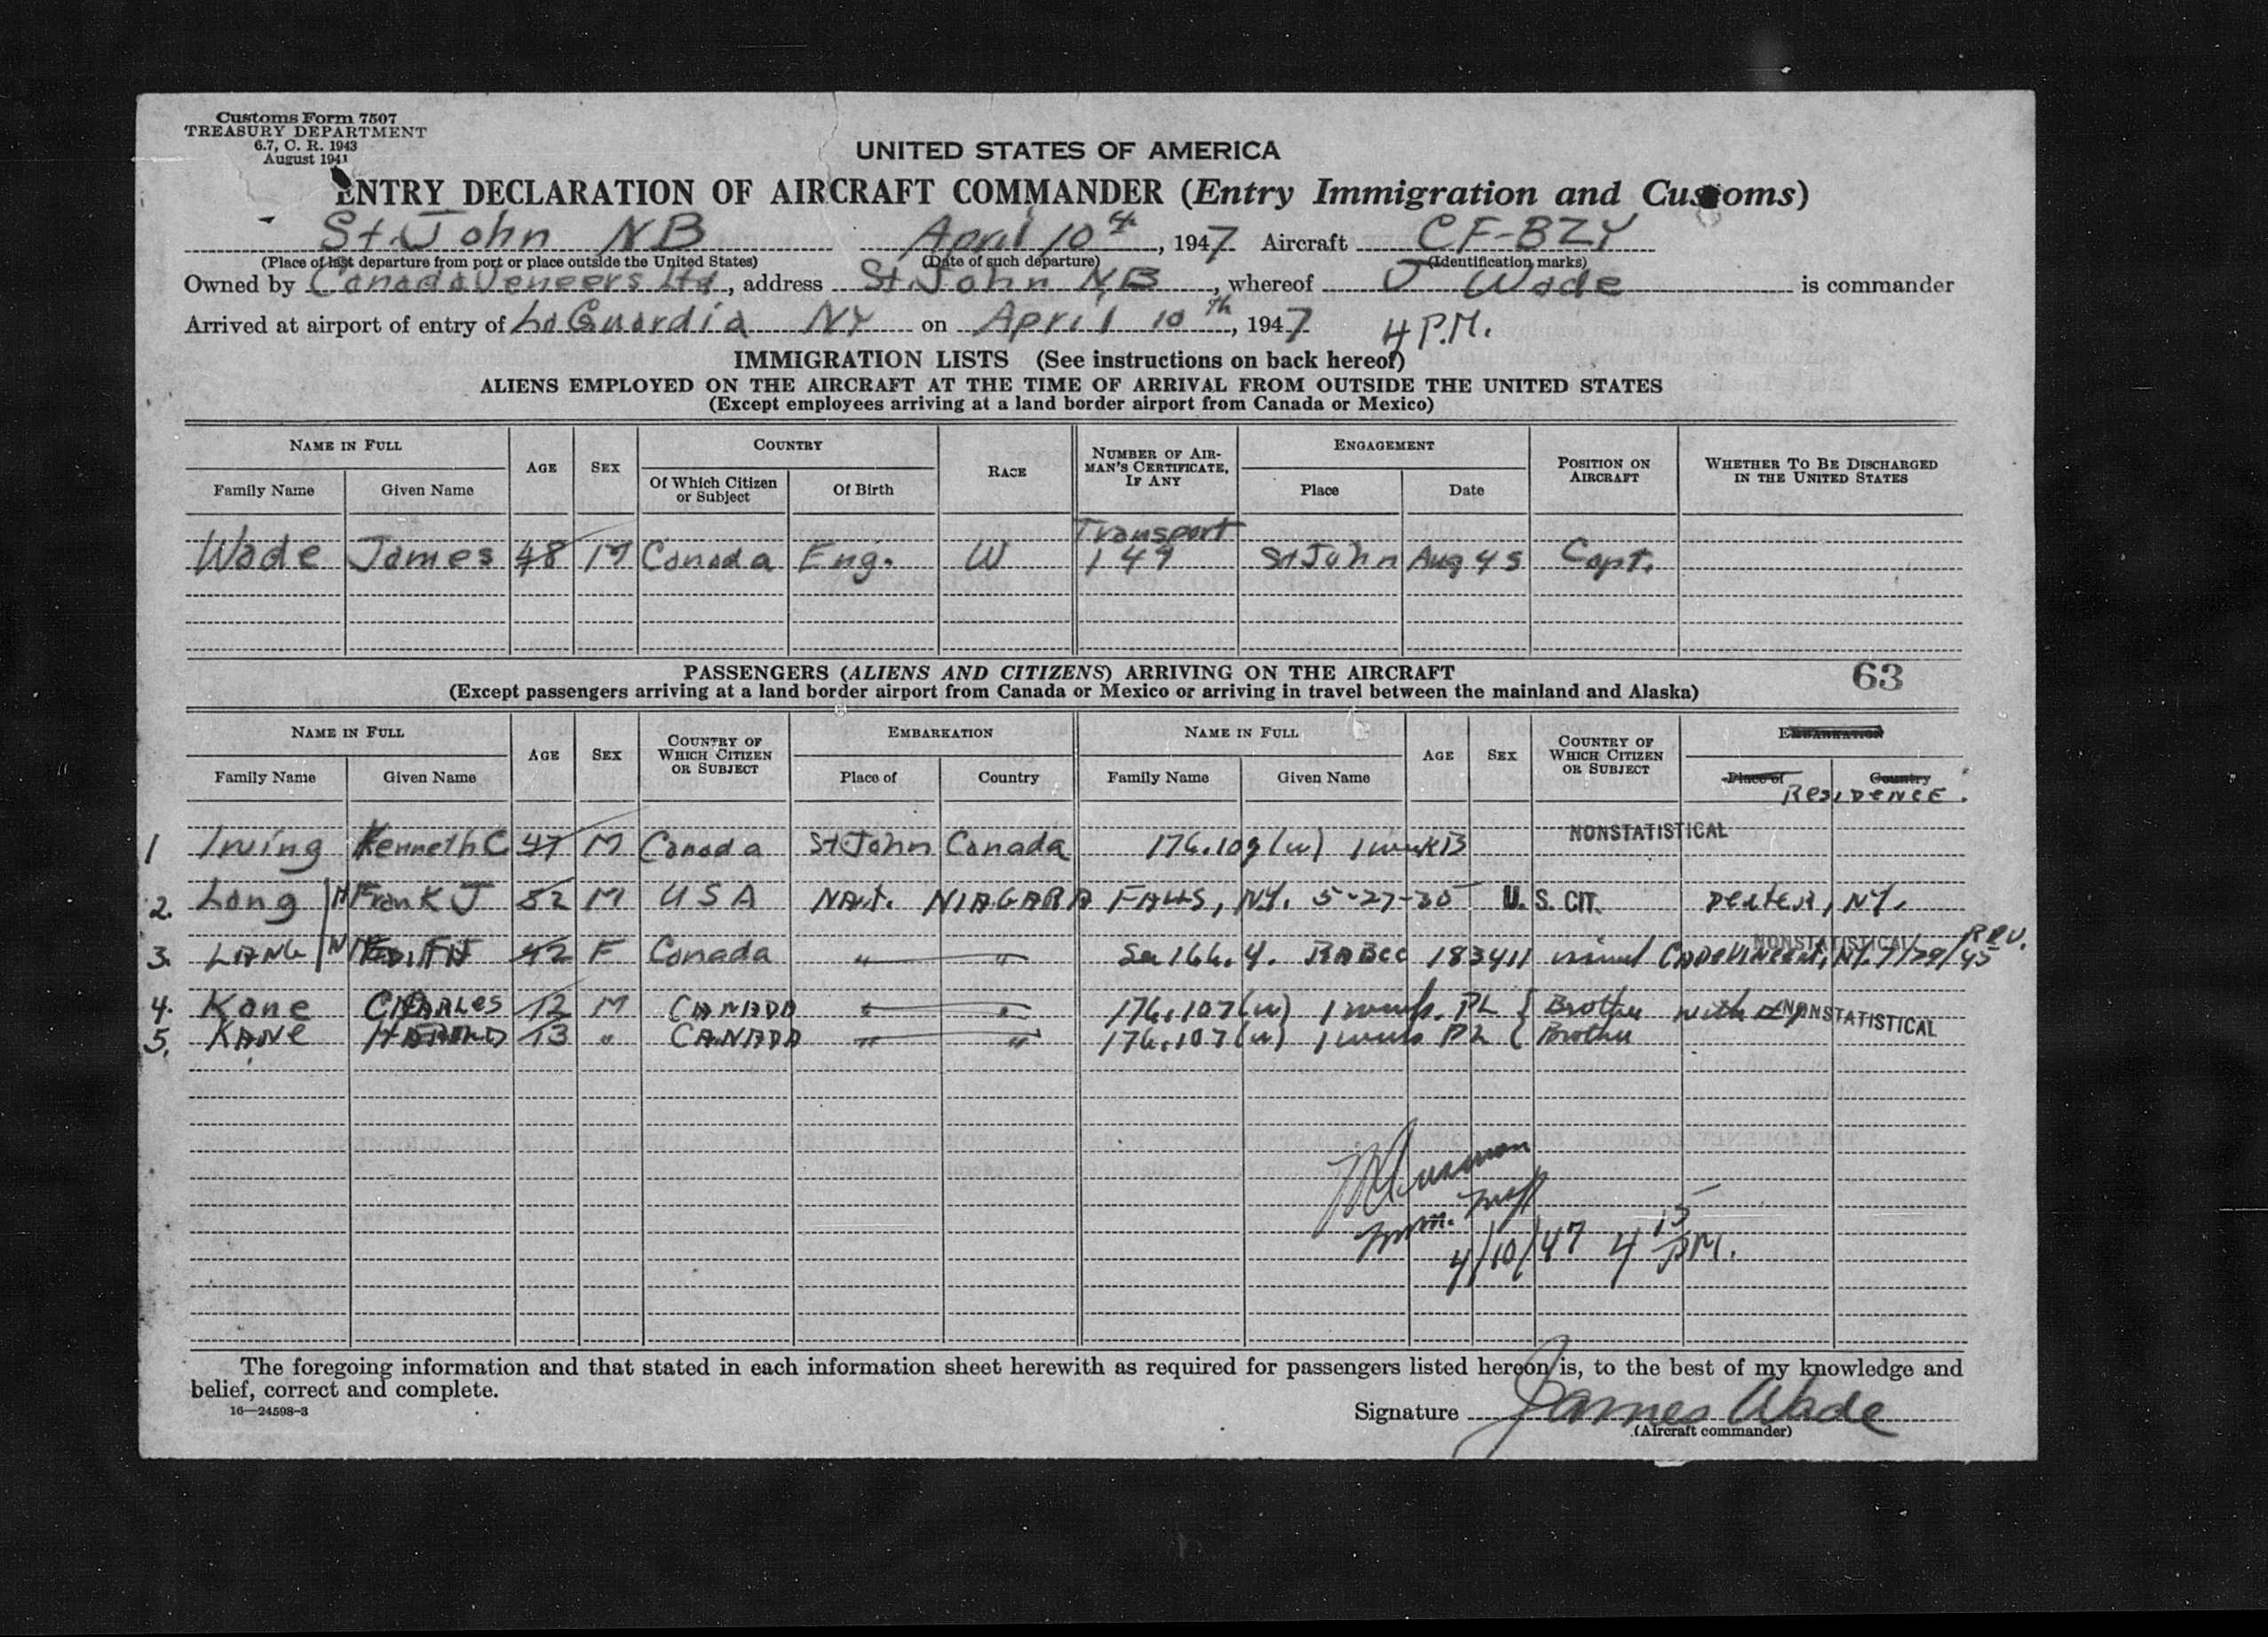 Customs Form 7507
TREASURY DEPARTMENT
6.7, C. R. 1943
August 1941
UNITED STATES OF AMERICA
ENTRY DECLARATION OF AIRCRAFT COMMANDER (Entry Immigration and Customs)
St. John NB April 10th, 1947 Aircraft CF-BZY
(Place of last departure from port or place outside the United States) (Date of such departure) (Identification marks)
Owned by Canada Veneers Ltd, address St. John NB, whereof J Wade is commander
Arrived at airport of entry of LaGuardia NY on April 10th, 1947 4 P.M.
IMMIGRATION LISTS (See instructions on back hereof)
ALIENS EMPLOYED ON THE AIRCRAFT AT THE TIME OF ARRIVAL FROM OUTSIDE THE UNITED STATES
(Except employees arriving at a land border airport from Canada or Mexico)
NAME IN FULL AGE SEX COUNTRY RACE NUMBER OF AIRMAN'S CERTIFICATE, IF ANY ENGAGEMENT POSITION ON AIRCRAFT WHETHER TO BE DISCHARGED IN THE UNITED STATES
Family Name Given Name Of Which Citizen or Subject Of Birth Place Date
Transport
Wade James 48 M Canada Eng. W 149 St John Aug 45 Capt.
PASSENGERS (ALIENS AND CITIZENS) ARRIVING ON THE AIRCRAFT 63
(Except passengers arriving at a land border airport from Canada or Mexico or arriving in travel between the mainland and Alaska)
NAME IN FULL AGE SEX COUNTRY OF WHICH CITIZEN OR SUBJECT EMBARKATION NAME IN FULL AGE SEX COUNTRY OF WHICH CITIZEN OR SUBJECT EMBARKATION
Family Name Given Name Place of Country Family Name Given Name Place of Country
RESIDENCE.
1 Irving Kenneth C 47 M Canada St John Canada 176.109(w) 1 week B NONSTATISTICAL
2. Long M Frank J 52 M USA NAT. NIAGARA FALLS, NY. 5-27-35 U.S. CIT. Dexter, NY.
3. LANG M EDITH 42 F Canada " " 166.4. 183411 Cape Vincent, NY. 7/29/45 NONSTATISTICAL
4. Kane CHARLES 12 M CANADA " " 176.107(w) PL { Brother with NONSTATISTICAL
5. KANE HAROLD 13 " CANADA " " 176.107(w) PL { Brother
Imm. Insp
4/10/47 4 15 P.M.
The foregoing information and that stated in each information sheet herewith as required for passengers listed hereon is, to the best of my knowledge and
belief, correct and complete.
16—24598-3
Signature James Wade
(Aircraft commander)